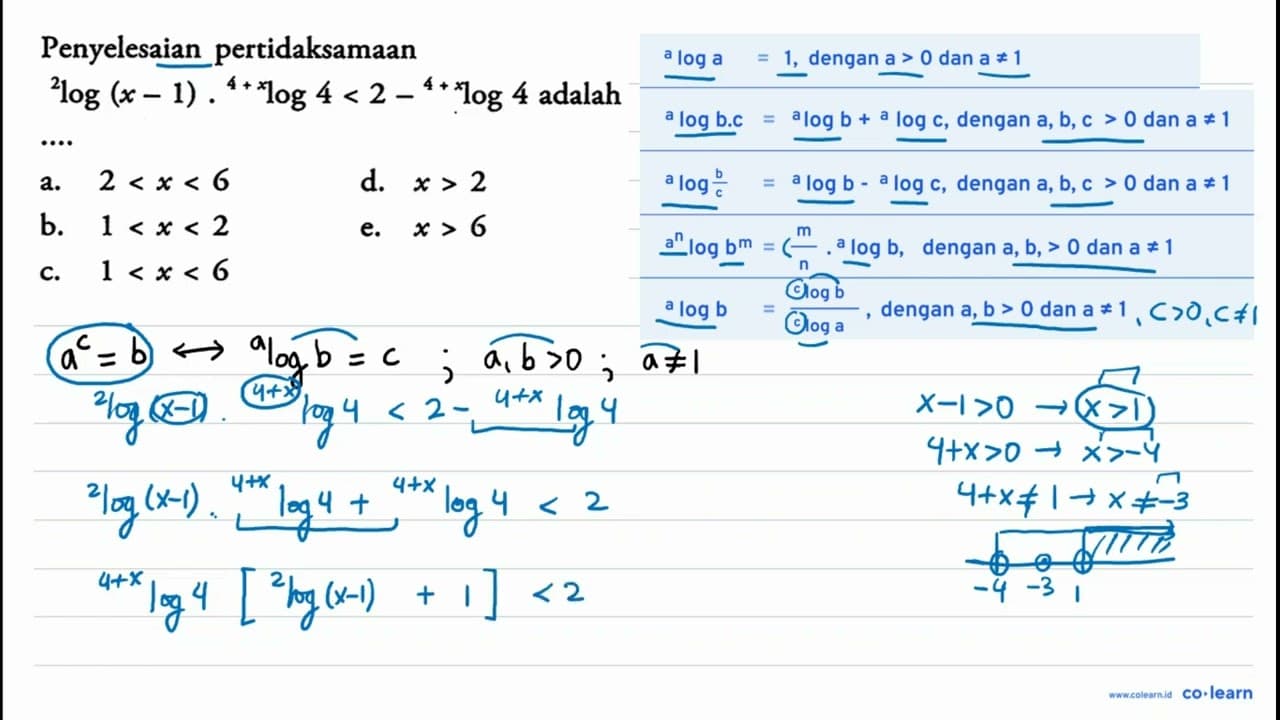 Penyelesaian pertidaksamaan
²log (x – 1) . ⁴⁺ˣlog 4 < 2 – ⁴⁺ˣlog 4 adalah
....
a. 2 < x < 6
d. x > 2
b. 1 < x < 2
e. x > 6
c. 1 < x < 6
ᵃlog a = 1, dengan a > 0 dan a ≠ 1
ᵃlog b.c = ᵃlog b + ᵃlog c, dengan a, b, c > 0 dan a ≠ 1
ᵃlog b/c = ᵃlog b - ᵃlog c, dengan a, b, c > 0 dan a ≠ 1
ᵃⁿlog bᵐ = (m/n . ᵃlog b, dengan a, b, > 0 dan a ≠ 1
ᵃlog b = ᶜlog b / ᶜlog a , dengan a, b > 0 dan a ≠ 1 , C>0, C≠1
aᶜ = b ↔ ᵃlog b = c ; a, b >0 ; a≠1
²log (x-1) . ⁴⁺ˣlog 4 < 2 - ⁴⁺ˣlog 4
²log (x-1) . ⁴⁺ˣlog 4 + ⁴⁺ˣlog 4 < 2
⁴⁺ˣlog 4 [ ²log (x-1) + 1 ] < 2
x-1>0 → x>1
4+x>0 → x>-4
4+x≠1 → x≠-3
-4 -3 1
www.colearn.id co•learn